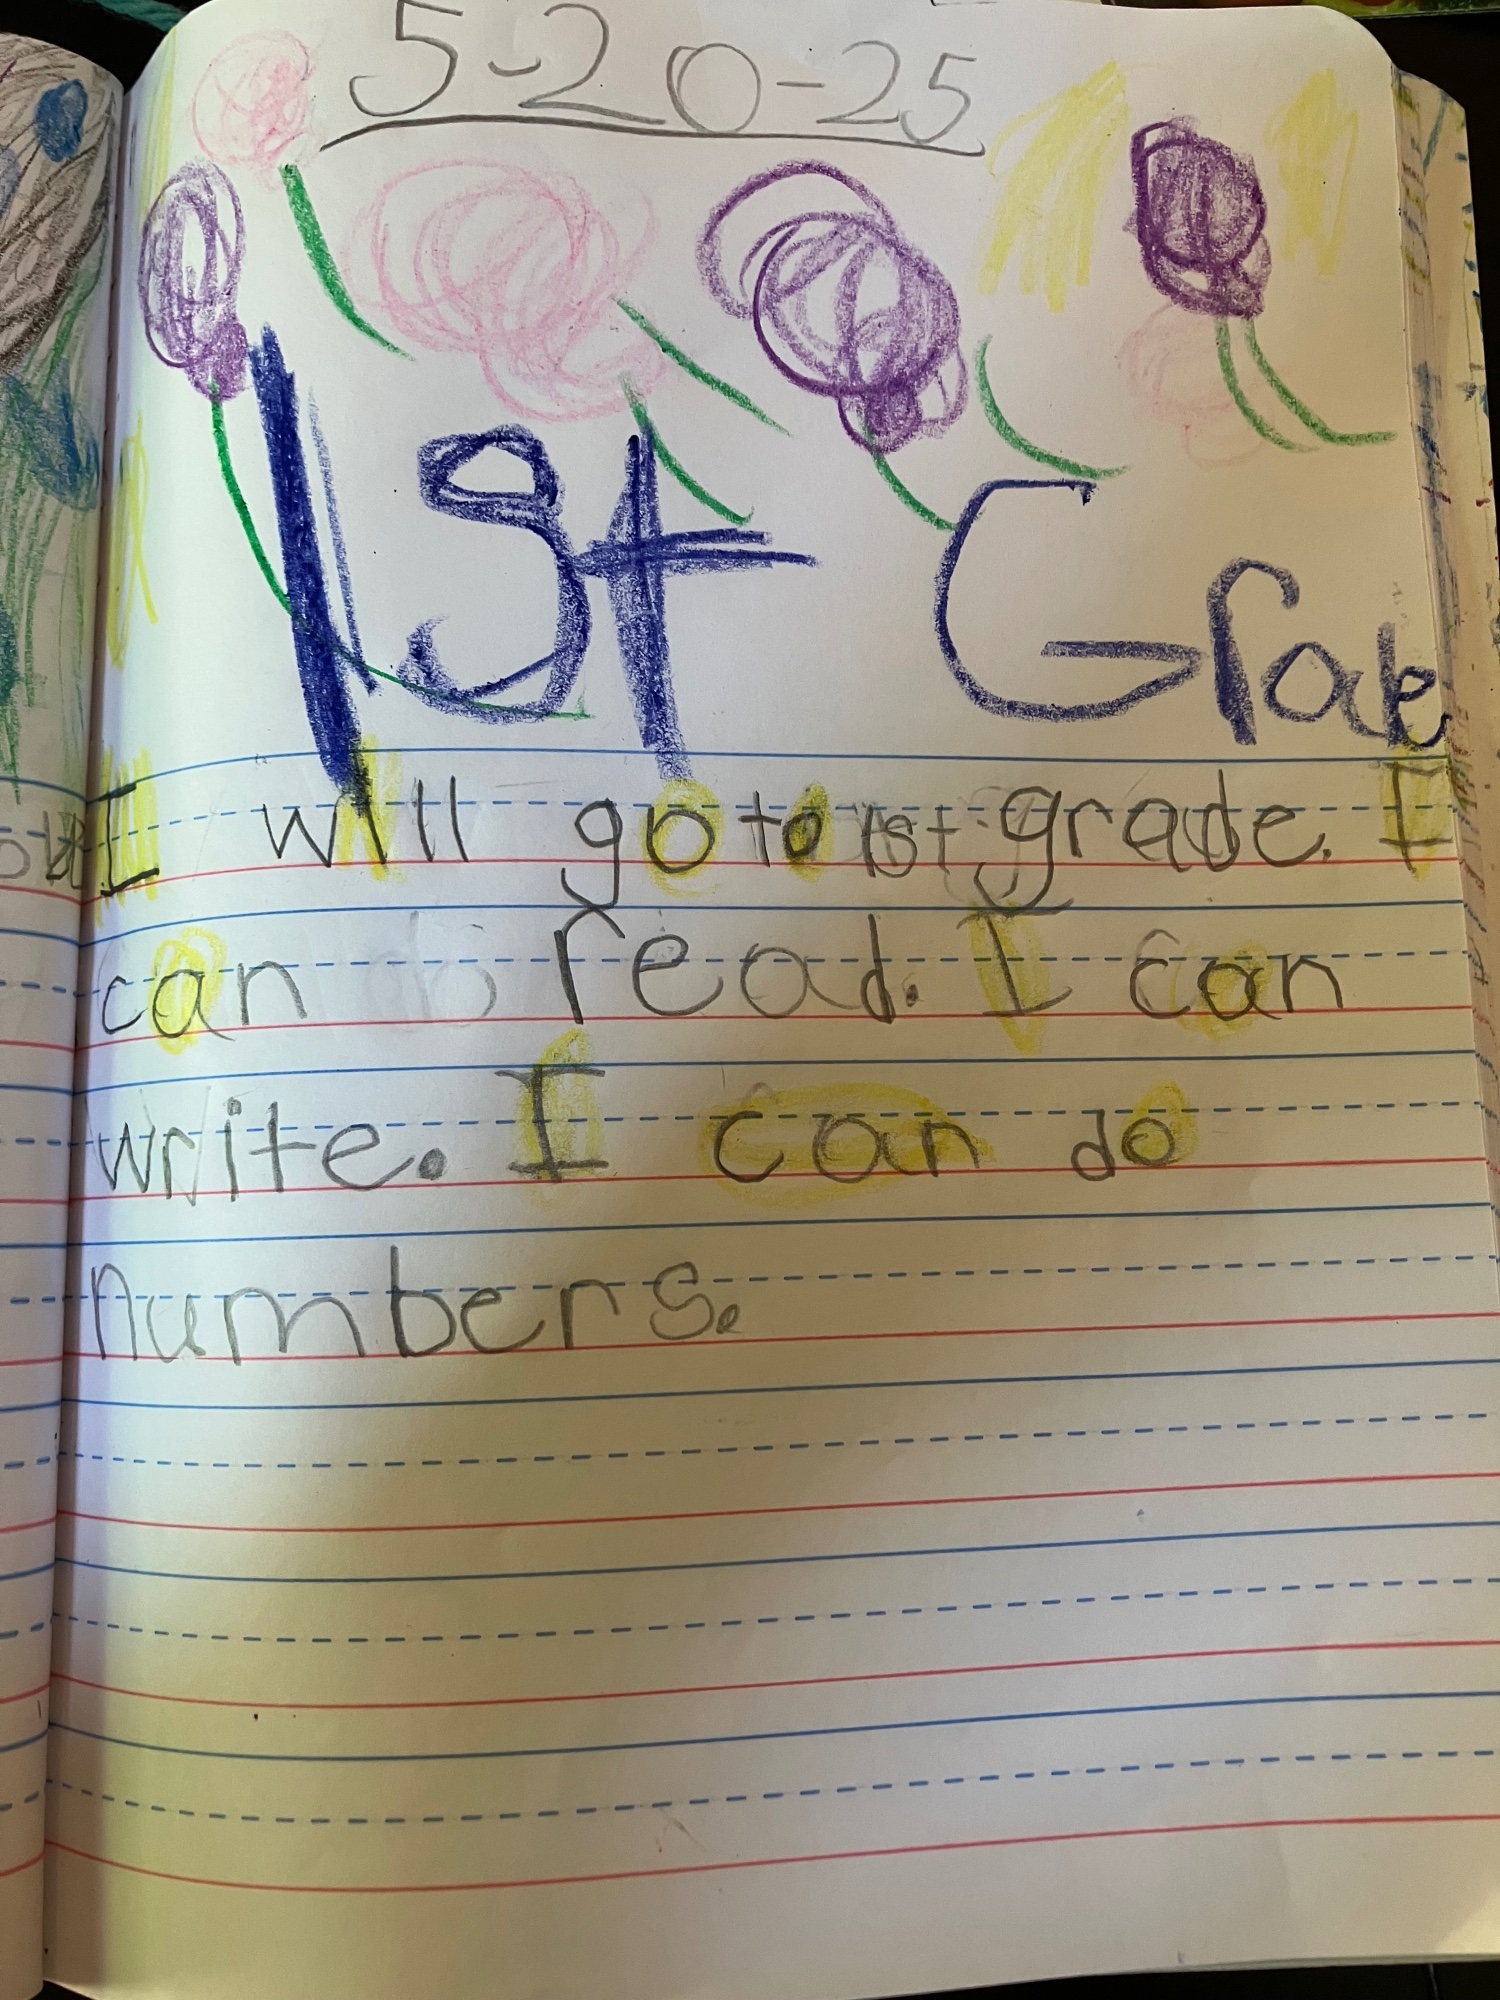 5-20-25
1st Grade
I will go to 1st grade. I
can read. I can
write. I can do
numbers.